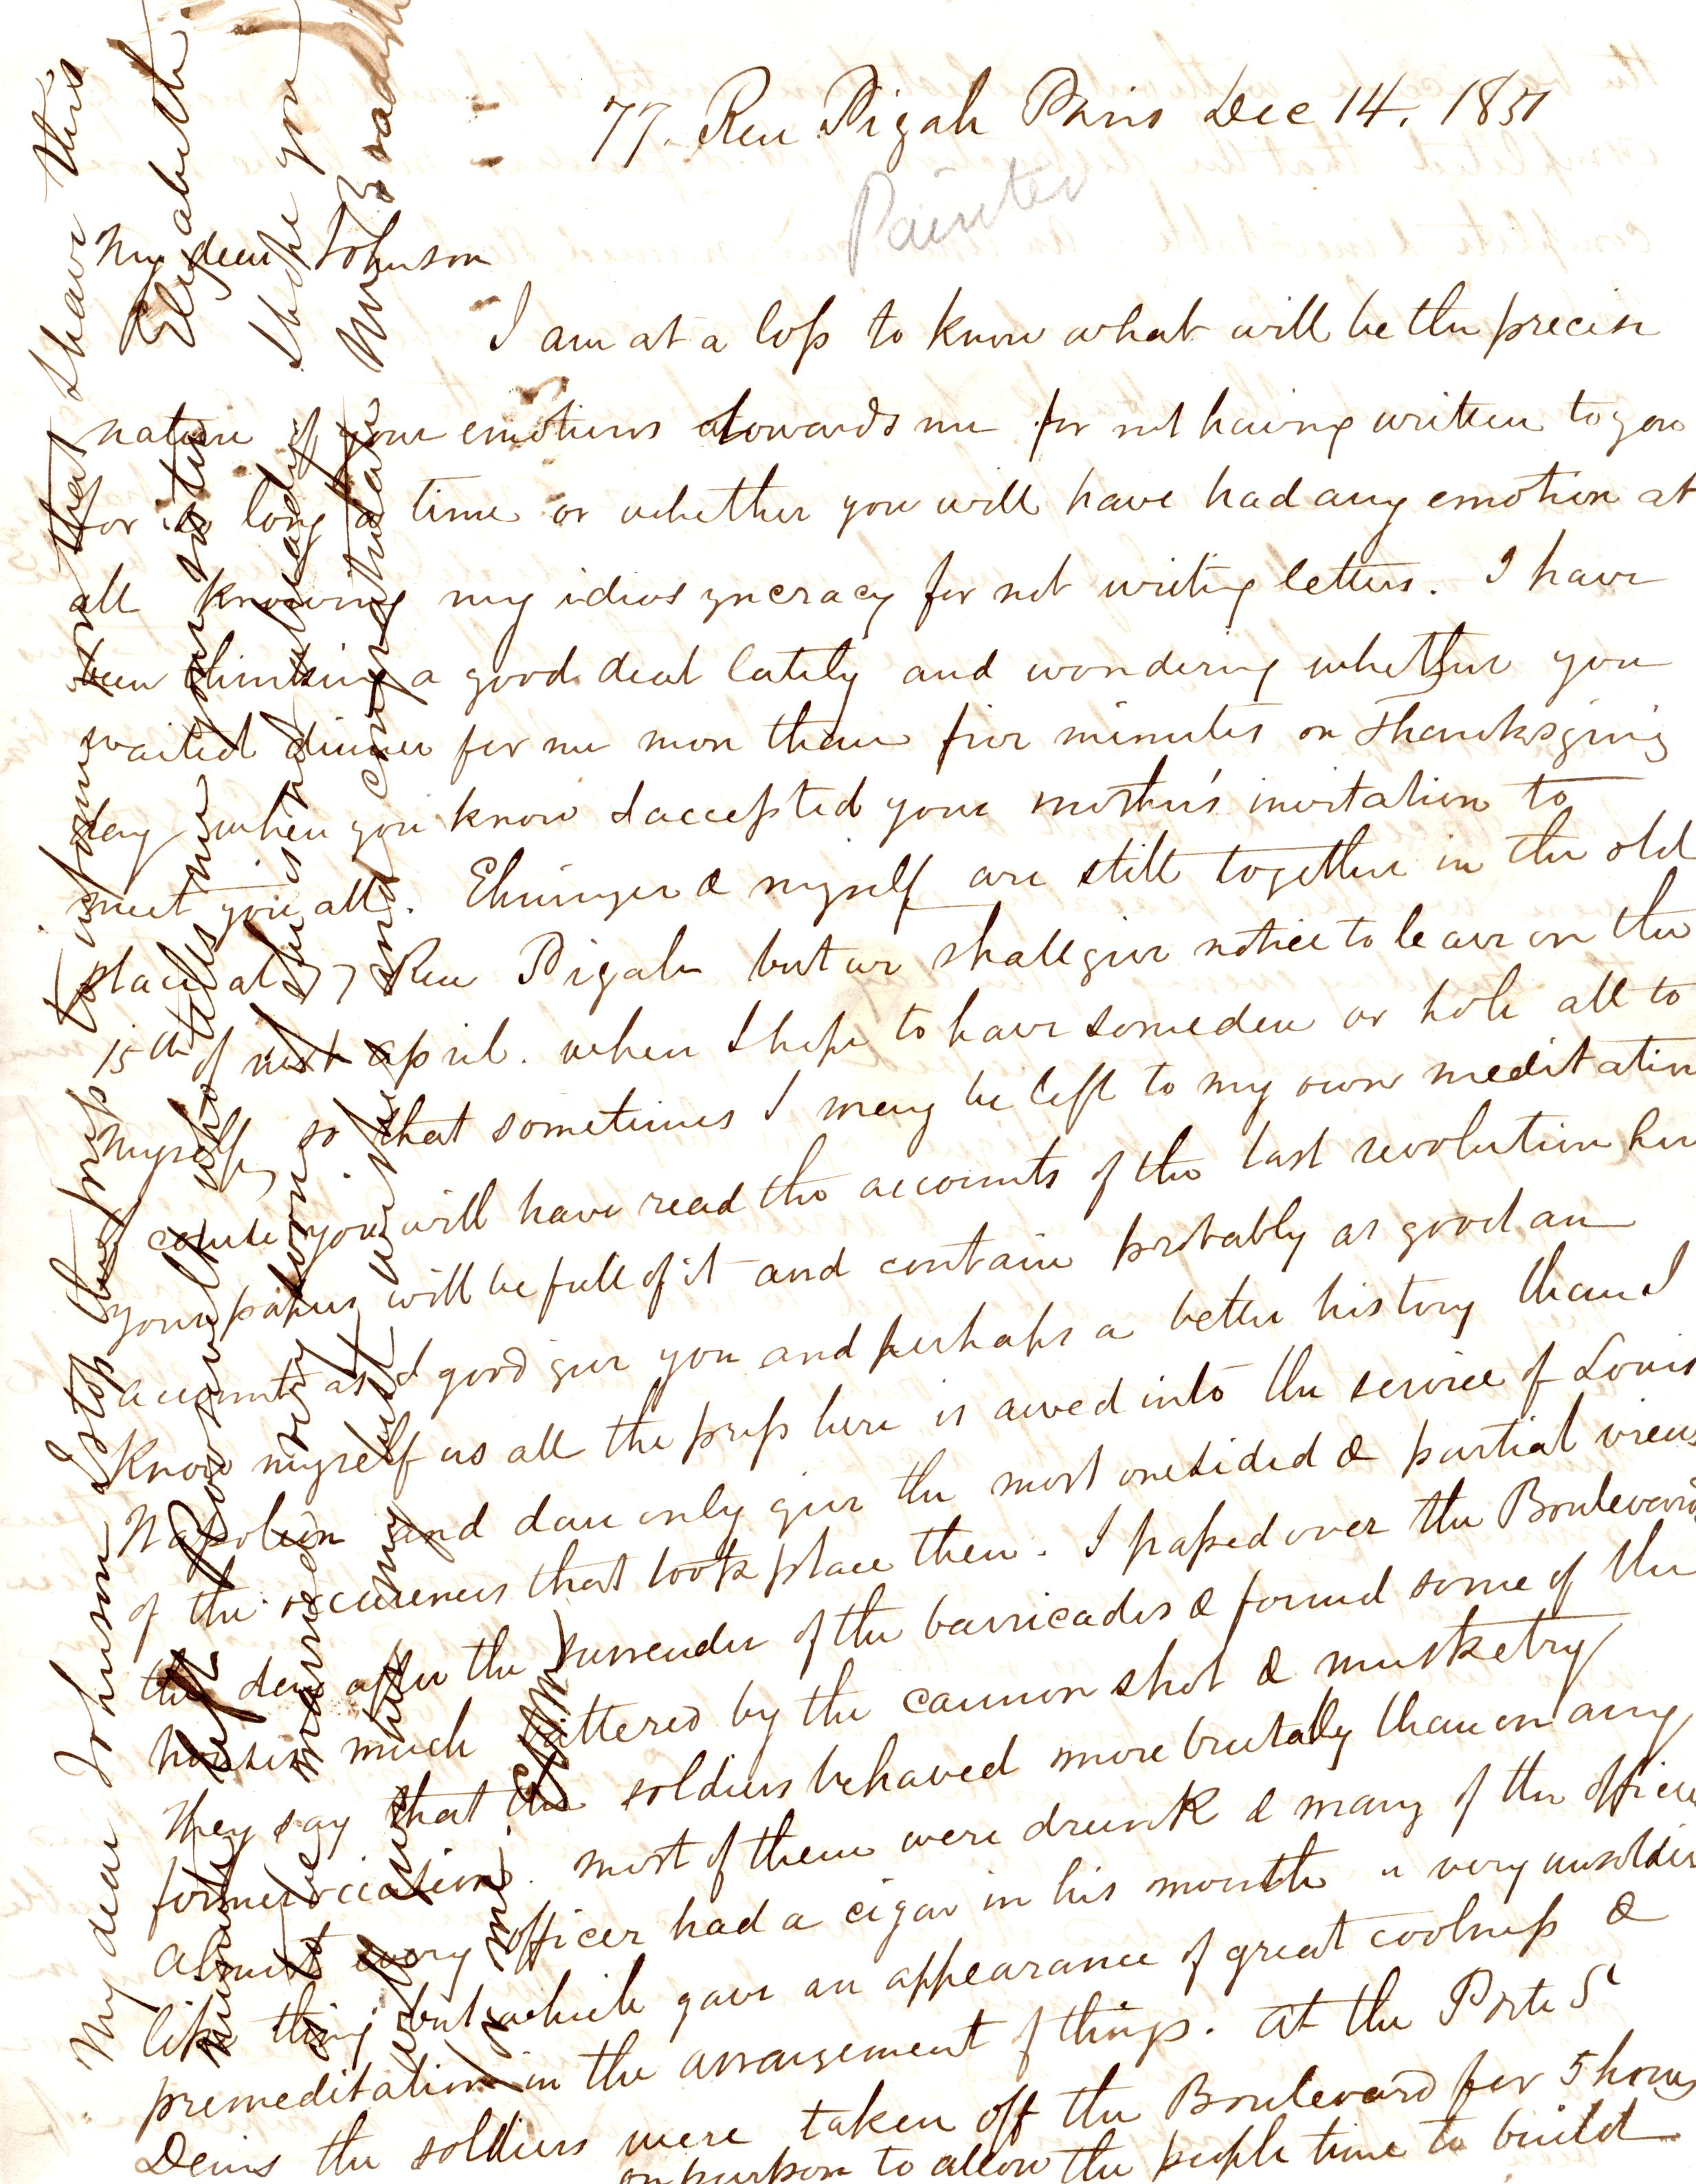 77. Reu Pigale Paris Dec 14. 1851
Painter
My dear Johnson
I am at a loss to know what will be the precise
nature of your emotions towards me for not having written to you
for so long a time or whether you will have had any emotion at
all knowing my idiosyncracy for not writing letters. I have
been thinking a good deal lately and wondering whether you
waited dinner for me more than five minutes on Thanksgiving
day when you know I accepted your mother's invitation to
meet you all. Ehninger & myself are still together in the old
place at 77 Reu Pigale but we shall give notice to leave on the
15th of next april. when I hope to have some den or hole all to
myself, so that sometimes I may be left to my own meditation
course you will have read the accounts of the last revolution here
your papers will be full of it and contain probably as good an
account as I good give you and perhaps a better history than I
know myself as all the press here is awed into the service of Louis
Napoleon and dare only give the most onesided & partial views
of the occurences that took place then. I passed over the Boulevards
the day after the surrender of the barricades & found some of the
houses much battered by the cannon shot & musketry
They say that the soldiers behaved more brutally than on any
former occasion. most of them were drunk & many of the officers
almost every officer had a cigar in his mouth a very unsoldier
like thing but which gave an appearance of great coolness &
premeditation in the arrangement of things. at the Porte St
Denis the soldiers were taken off the Boulevard for 5 hours
on purpose to allow the people time to build
My dear Johnson I stop the press to inform you that I have this
minute left Roosevelt who tells me your sister Elizabeth
is to be married very soon, so if she is not already I hope you
will give her my best wishes and congratulations Mrs
for me. (EHM)